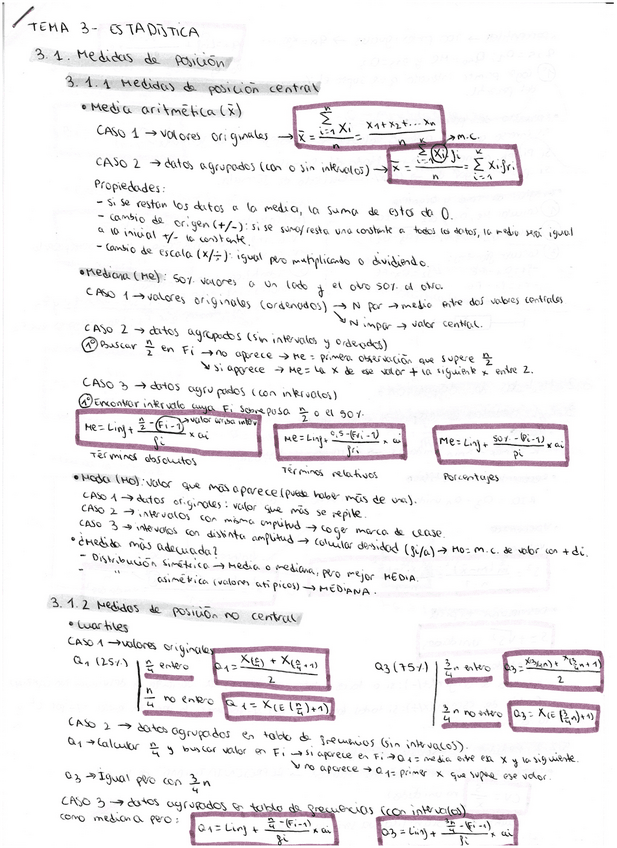 TEMA 3 - ESTADÍSTICA
3.1. Medidas de posición
3.1.1 Medidas de posición central
• Media aritmética (x̄)
CASO 1 → valores originales → x̄ = Σ(i=1 → n) Xi / n = (X1 + X2 + ... Xn) / n
CASO 2 → datos agrupados (con o sin intervalos) → x̄ = Σ(i=1 → k) Xi fi / n = Σ(i=1 → k) Xi fri → m.c.
Propiedades:
- si se restan los datos a la media, la suma de estos da 0.
- cambio de origen (+/-): si se suma/resta una constante a todos los datos, la media será igual
a la inicial +/- la constante.
- cambio de escala (x/÷): igual pero multiplicando o dividiendo.
• Mediana (Me): 50% valores a un lado y el otro 50% al otro.
CASO 1 → valores originales (ordenados) → N par → medio entre dos valores centrales
↘ N impar → valor central.
CASO 2 → datos agrupados (sin intervalos y ordenados)
1º Buscar n/2 en Fi → no aparece → Me = primera observación que supere n/2
↘ si aparece → Me = la x de ese valor + la siguiente x entre 2.
CASO 3 → datos agrupados (con intervalos)
1º Encontrar intervalo cuya Fi sobrepasa n/2 o el 50%.
Me = Linf + (n/2 - (Fi-1)) / fi × ai → valor
Me = Linf + (0,5 - (Fri-1)) / fri × ai
Me = Linf + (50% - (Pi-1)) / pi × ai
Términos absolutos
Términos relativos
Porcentajes
• Moda (Mo): valor que más aparece (puede haber más de una).
CASO 1 → datos originales: valor que más se repite.
CASO 2 → intervalos con misma amplitud → coger marca de clase.
CASO 3 → intervalos con distinta amplitud → calcular densidad (fi/a) → Mo = m.c. de valor con + di.
• ¿Medida más adecuada?
- Distribución simétrica → Media o mediana, pero mejor MEDIA.
- " asimétrica (valores atípicos) → MEDIANA.
3.1.2 Medidas de posición no central
• Cuartiles
CASO 1 → valores originales
Q1 (25%) n/4 entero Q1 = (X(n/4) + X(n/4+1)) / 2
n/4 no entero Q1 = X(E(n/4)+1)
Q3 (75%) 3/4 n entero Q3 = (X(3/4n) + X(3/4n+1)) / 2
3/4 n no entero Q3 = X(E(3/4n)+1)
CASO 2 → datos agrupados en tabla de frecuencias (sin intervalos).
Q1 → Calcular n/4 y buscar valor en Fi → si aparece en Fi → Q1 = media entre esa X y la siguiente.
↘ no aparece → Q1 = primer X que supere ese valor.
Q3 → Igual pero con 3/4 n
CASO 3 → datos agrupados en tabla de frecuencias (con intervalos)
como mediana pero: Q1 = Linf + (n/4 - (Fi-1)) / fi × ai Q3 = Linf + (3n/4 - (Fi-1)) / fi × ai